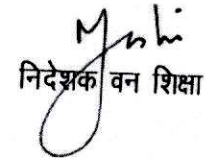 निदेशक वन शिक्षा